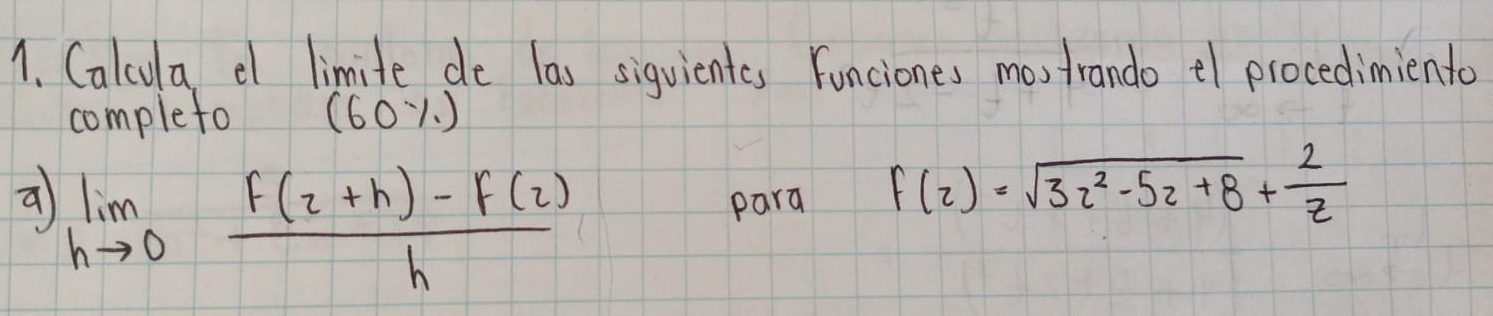 1. Calcula el limite de las siguientes funciones mostrando el procedimiento
completo (60%)
a) lim h→0 F(z+h) - F(z) / h para F(z) = √(3z² - 5z + 8) + 2/z